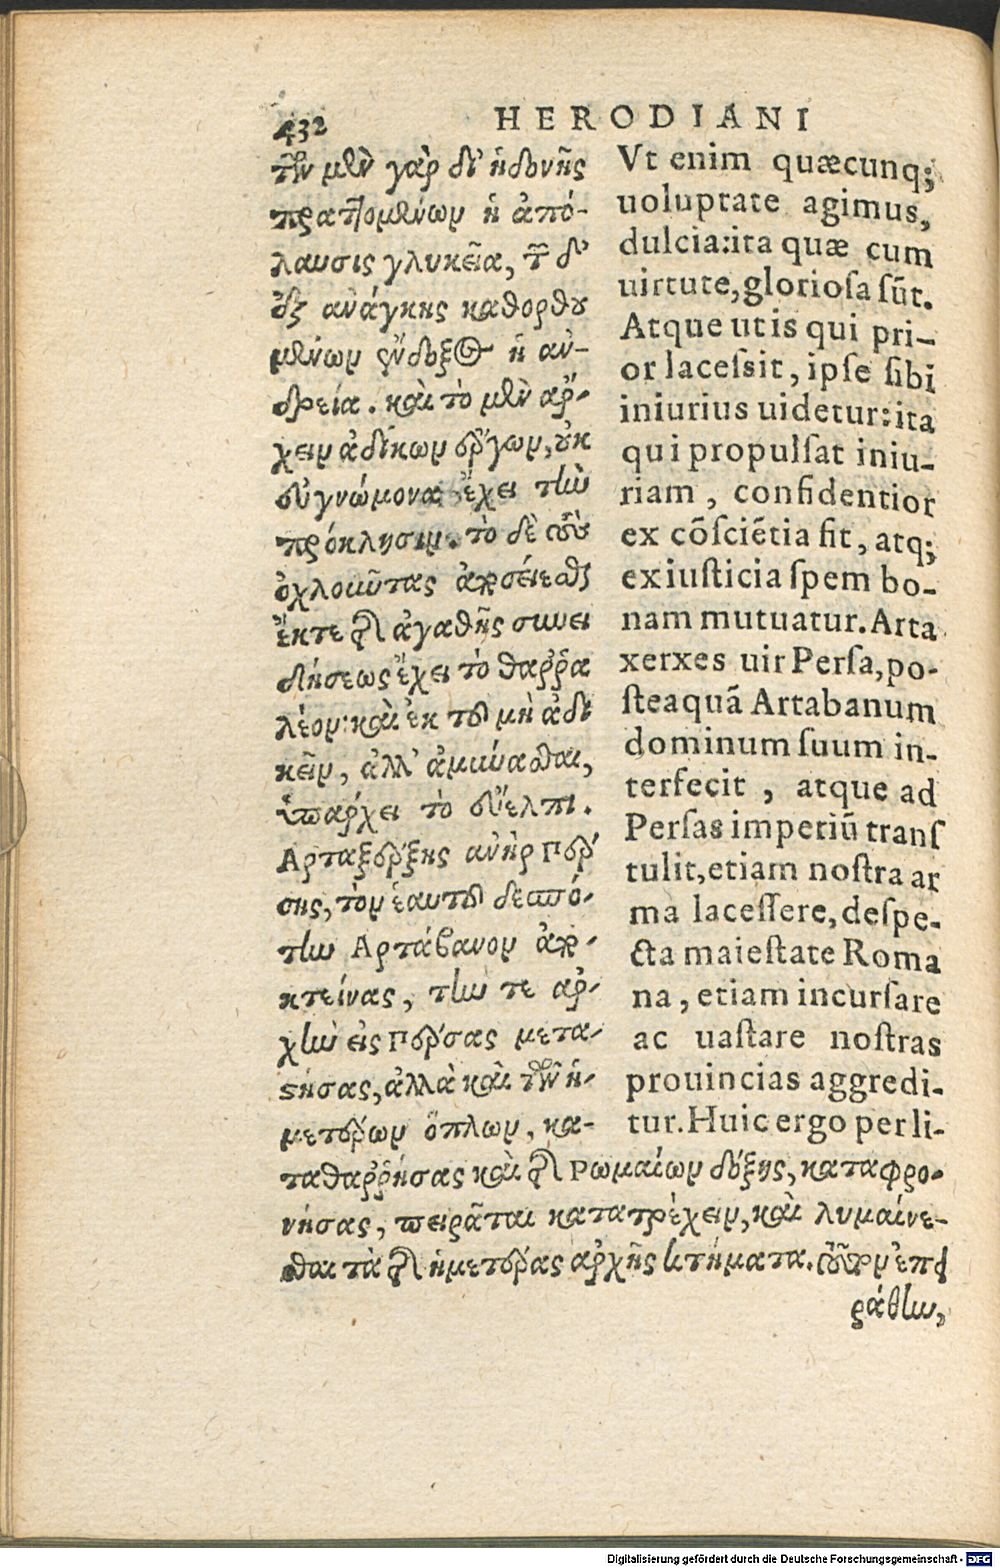 432 HERODIANI
τῶν μὲν γὰρ δι' ἡδονῆς
πραττομένων ἡ ἀπό-
λαυσις γλυκεῖα, τῶν δ'
ἐξ ἀνάγκης καθορθου
μένων ἔνδοξος ἡ ἀν-
δρεία. καὶ τὸ μὲν ἄρ-
χειν ἀδίκων ἔργων, οὐκ
εὐγνώμονα ἔχει τὴν
πρόκλησιν. τὸ δὲ τοὺς
ὀχλοῦντας ἀποσείεσθαι
ἔκ τε τῆς ἀγαθῆς συνει
δήσεως ἔχει τὸ θαῤῥα
λέον· καὶ ἐκ τοῦ μὴ ἀδι
κεῖν, ἀλλ' ἀμύνασθαι,
ὑπάρχει τὸ εὔελπι.
Ἀρταξέρξης ἀνὴρ Πέρ
σης, τὸν ἑαυτοῦ δεσπό-
την Ἀρτάβανον ἀπο-
κτείνας, τήν τε ἀρ-
χὴν εἰς Πέρσας μετα-
στήσας, ἀλλὰ καὶ τῶν ἡ-
μετέρων ὅπλων, κα-
ταθαῤῥήσας καὶ τῆς Ρωμαίων δόξης, καταφρο-
νήσας, πειρᾶται κατατρέχειν, καὶ λυμαίνε-
σθαι τὰ τῆς ἡμετέρας ἀρχῆς κτήματα. τοῦτον ἐπει
ράθην,
Vt enim quæcunq;
uoluptate agimus,
dulcia:ita quæ cum
uirtute, gloriosa sũt.
Atque ut is qui pri-
or lacessit, ipse sibi
iniurius uidetur:ita
qui propulsat iniu-
riam, confidentior
ex cõsciẽtia fit, atq;
ex iusticia spem bo-
nam mutuatur. Arta
xerxes uir Persa, po-
steaquã Artabanum
dominum suum in-
terfecit, atque ad
Persas imperiũ trans
tulit, etiam nostra ar
ma lacessere, despe-
cta maiestate Roma
na, etiam incursare
ac uastare nostras
prouincias aggredi-
tur. Huic ergo per li-
Digitalisierung gefördert durch die Deutsche Forschungsgemeinschaft - DFG